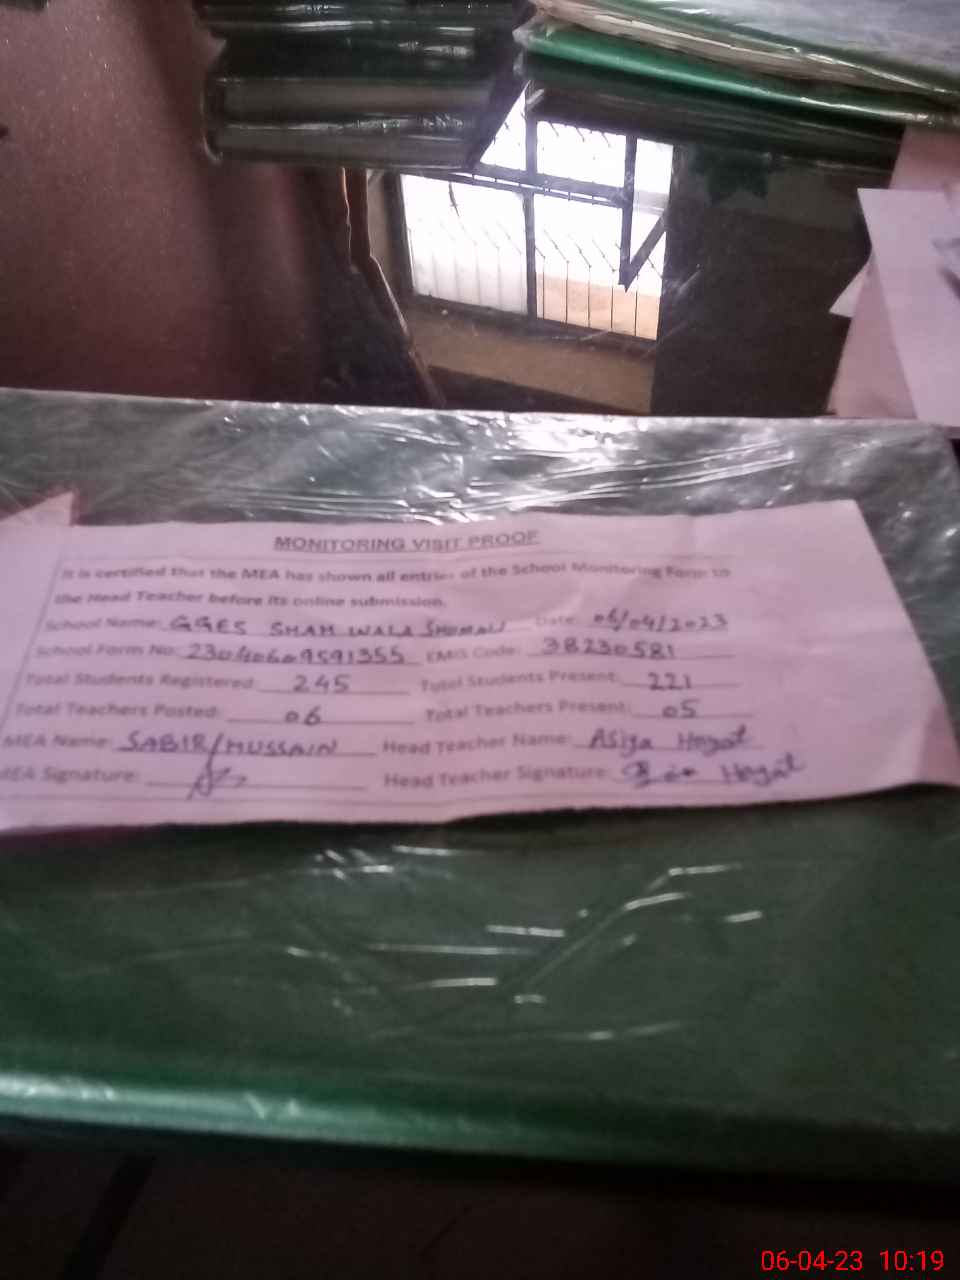 MONITORING VISIT PROOF
It is certified that the MEA has shown all entries of the School Monitoring Form to
the Head Teacher before its online submission.
School Name: GGES SHAH WALA SHUMALI Date: 06/04/2023
School Form No: 23040609591355 EMIS Code: 38230581
Total Students Registered: 245 Total Students Present: 221
Total Teachers Posted: 06 Total Teachers Present: 05
MEA Name: SABIR HUSSAIN Head Teacher Name: Asiya Hayat
MEA Signature: Head Teacher Signature: Hayat
06-04-23 10:19